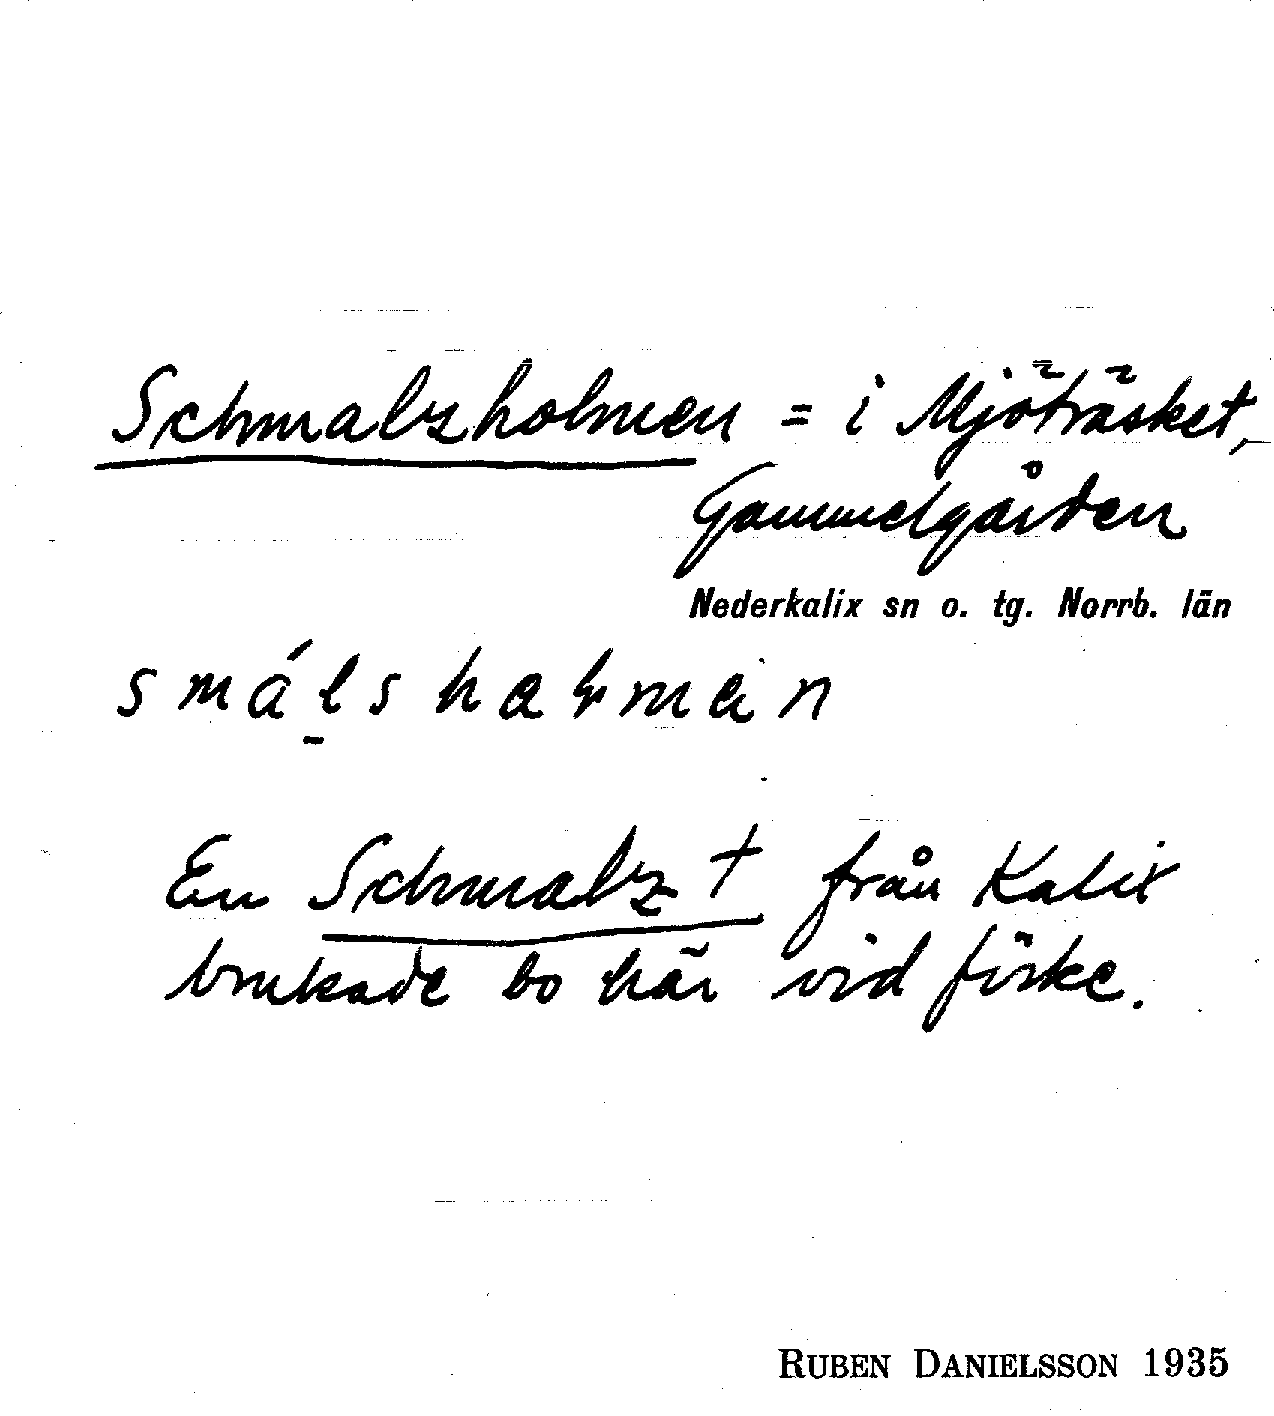 Schmalzholmen = i Mjöträsket,
Gammelgården
Nederkalix sn o. tg. Norrb. län
En Schmalz † från Kalix
brukade bo här vid fiske.
RUBEN DANIELSSON 1935